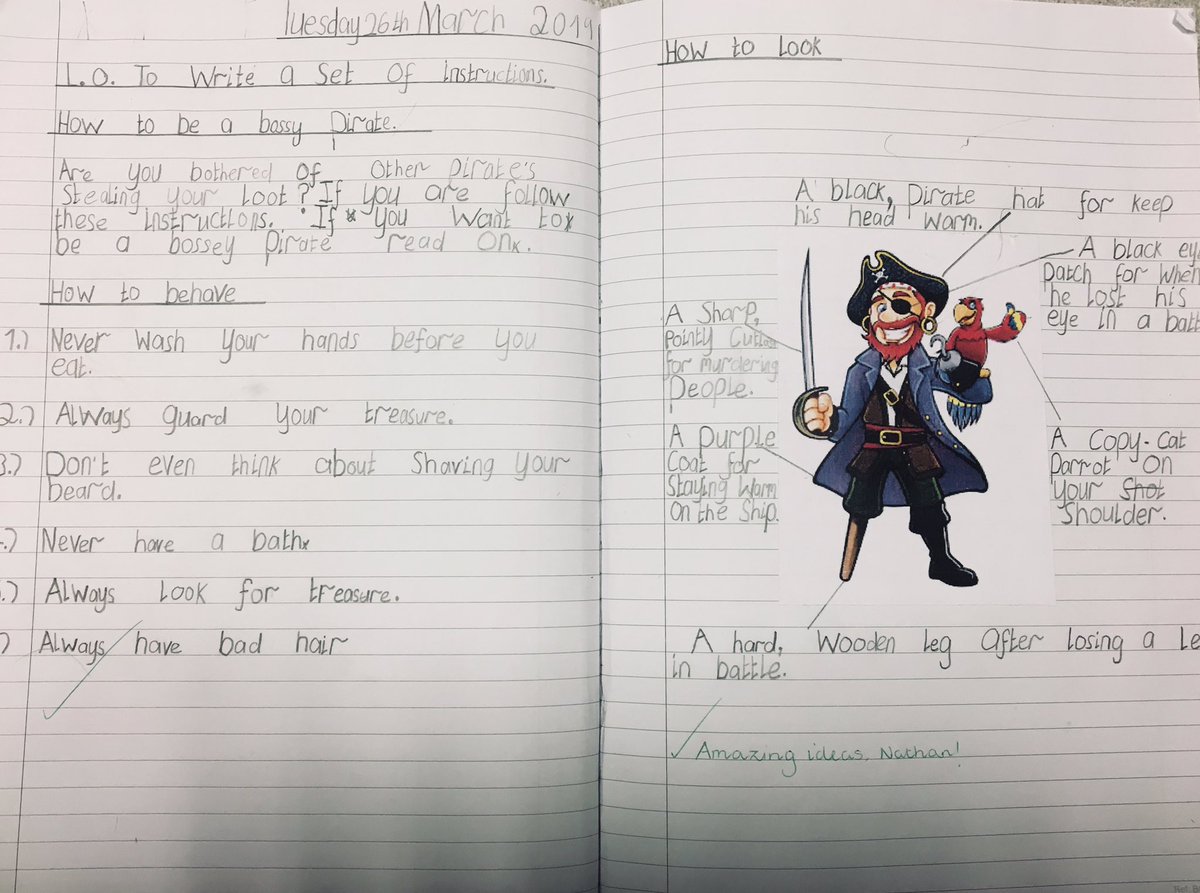 Tuesday 26th March 2019
L.O. To Write a set of instructions.
How to be a bossy pirate.
Are you bothered of other pirate's
stealing your loot? If you are follow
these instructions. If you want to
be a bossey pirate read on.
How to behave
1.) Never wash your hands before you
eat.
2.) Always guard your treasure.
3.) Don't even think about shaving your
beard.
.) Never have a bath
.) Always look for treasure.
) Always have bad hair
How to look
A black, pirate hat for keep
his head warm.
A black eye
patch for when
he lost his
eye in a batt
A sharp,
pointy cutlass
for murdering
people.
A purple
coat for
staying warm
on the ship.
A copy-cat
parrot on
your shot
shoulder.
A hard, wooden leg after losing a le
in battle.
Amazing ideas, Nathan!